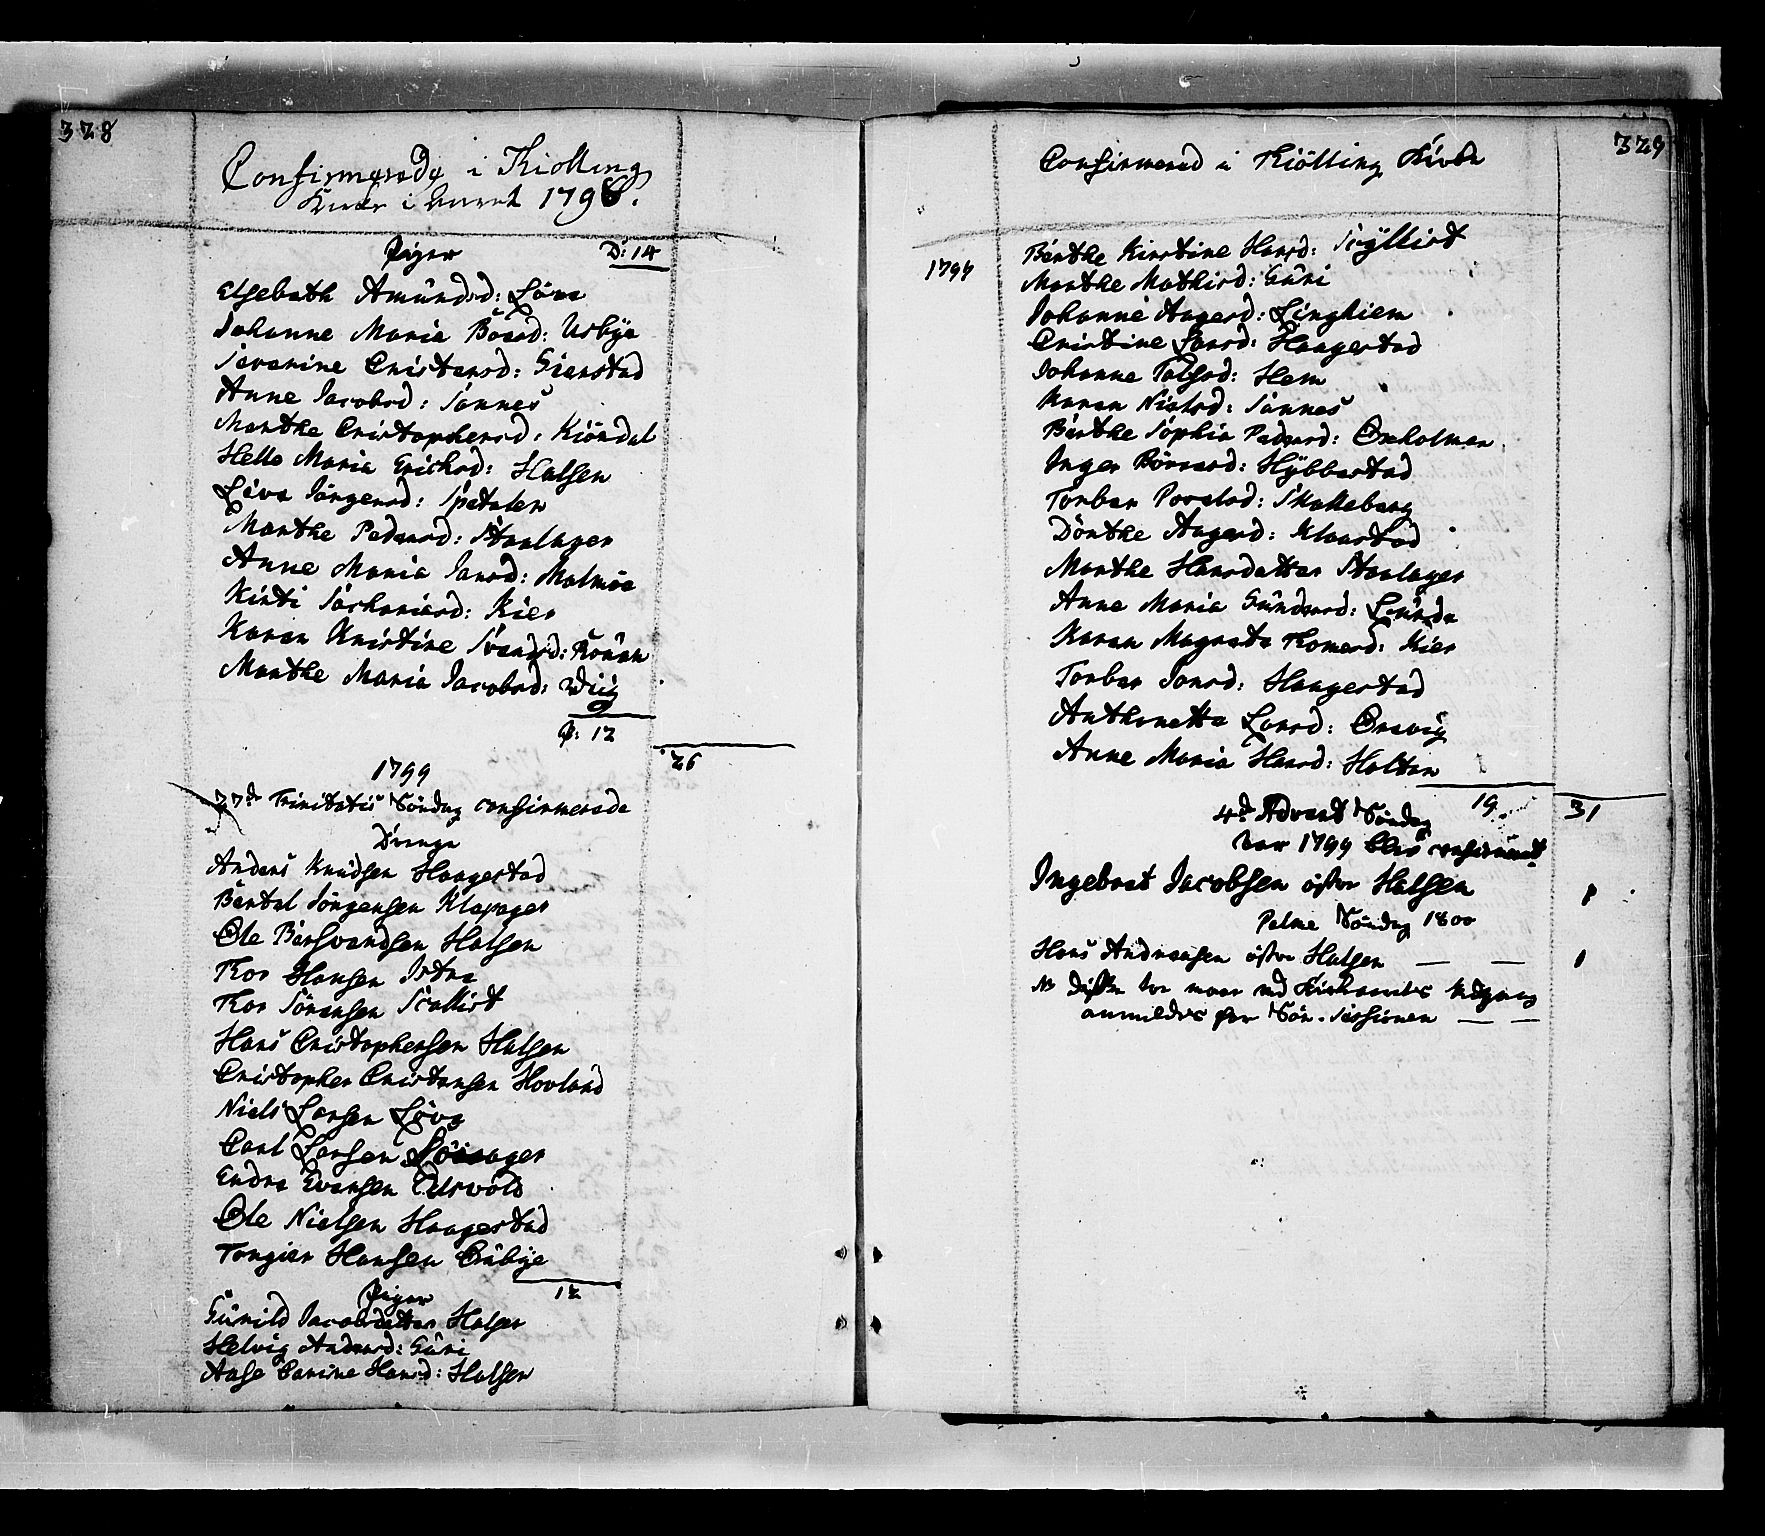 328
Confirmerede i Kiølling
Kirke i Aaret 1798.
Piger D: 14
Elsebeth Amündsd: Löve
Johanne Maria Boesd: Usbye
Severine Cristensd: Gierstad
Anne Jacobsd: Sannes
Marthe Cristophersd: Kiöndal
Helle Maria Erichsd: Halsen
Live Jörgensd: Spetalen
Marthe Pedersd: Staulager
Anne Maria Jansd: Malmöe
Kirsti Sachariesd: Kier
Karen Kristine Svendsd: Rönen
Marthe Maria Jacobsd: Wiig
P: 12
26
1799
Trinitatis Söndag confirmerede
Drenge
Anders Knüdsen Haagestad
Bertel Jörgensen Klepager
Ole Berthvendsen Halsen
Thor Hansen Istre
Thor Sörensen Scallist
Hans Cristophersen Halsen
Cristopher Cristensen Hovland
Niels Larsen Löve
Carl Larsen
Endre Evensen Eidsvold
Ole Nielsen Haagestad
Torgier Hansen Huseby
12
Piger
Günild Jacobsdatter Halsen
Helvig Andersd: Güri
Aase Carine Hansd: Halsen
329
Confirmered i Kiölling Kirke
1799
Berthe Kirstine Hansd: Scyllist
Marthe Mathisd: Güri
Johanne Aagesd: Linghiem
Cristine Larsd: Haagestad
Johanne Tolfsd: Hem
Karen Nielsd: Sannes
Berthe Sophia Pedersd: Oxholmen
Inger Börresd: Hybbestad
Torber Povelsd: Skalleberg
Dorthe Aagesd: Klaastad
Marthe Hansdatter Staulager
Anne Maria Gündersd: Lünde
Karen Magrete Thomesd: Kier
Torber Jonsd: Haagestad
Anthonette Larsd: Onsvig
Anne Maria Hansd: Holtan
19
31
4de Advent Söndag
1799 blev confirmeret
Ingebret Jacobsen östre Halsen
1
Palme Söndag 1800
Hans Andreasen östre Halsen — —
1
NB disse
anmeldes for Söe-Sessionen — —